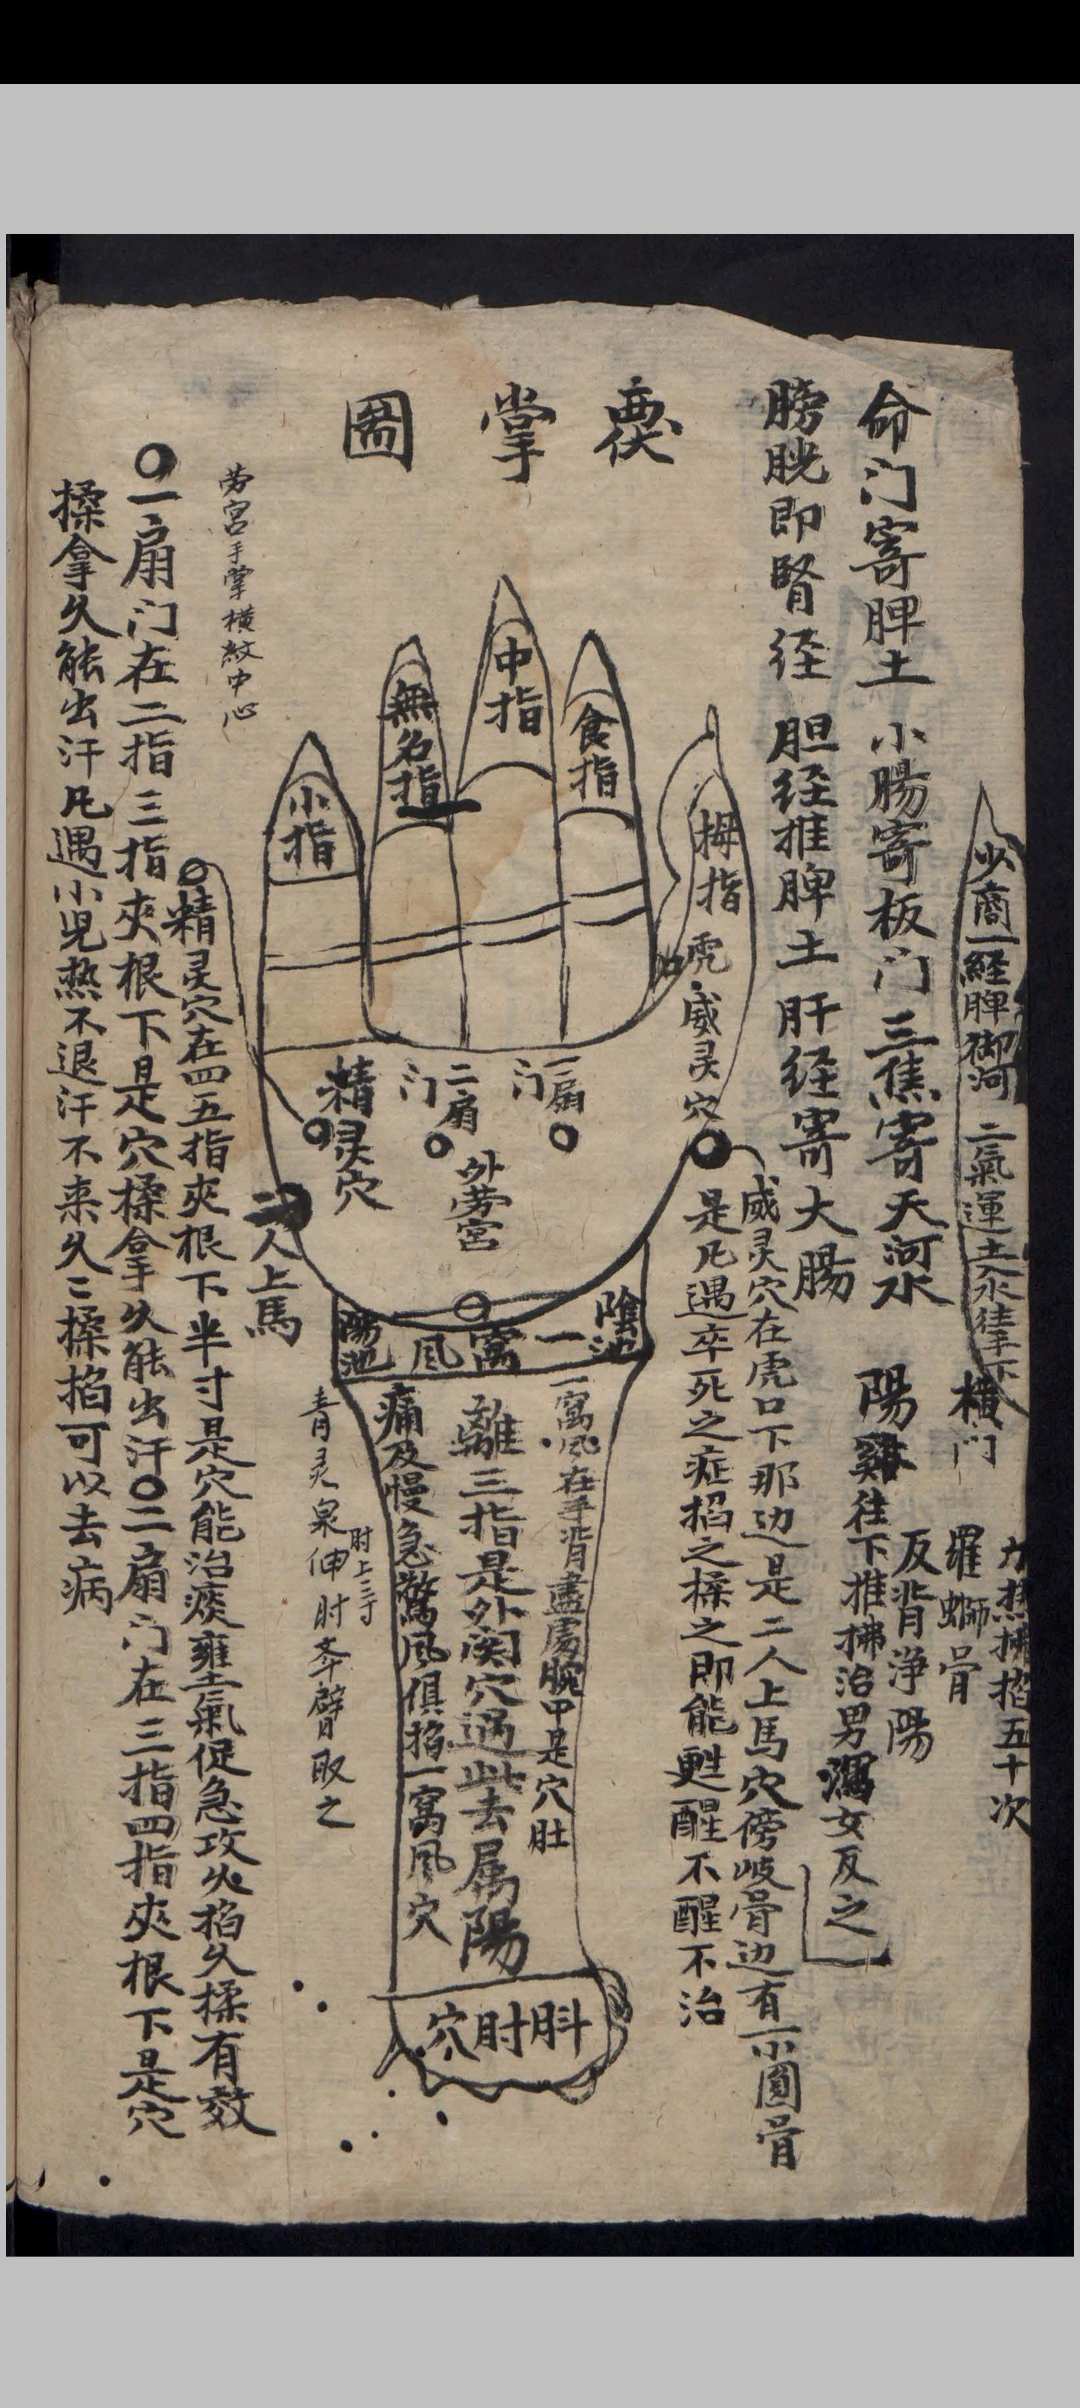 少商一経脾御河 二氣運土入水徍下
橫门
六㷱拂掐五十次
羅螄骨
反背净陽
命门寄脾土 小腸寄板门 三焦寄天河水
陽谿徍下推拂治男瀉女反之
膀胱即腎経 胆経推脾土 肝経寄大腸
威灵穴在虎口下那边是二人上馬穴傍岐骨边有一小圓骨
是凡遇卒死之症掐之揉之即能甦醒不醒不治
掌圖
拇指
虎
威灵穴
食指
中指
無名指
小指
一扇门
二扇门
精灵穴
外劳宫
二人上馬
陰池
一窩風
陽池
一窩风在手背盡處腕中是穴肚
痛及慢急驚风俱掐一窩風穴
離三指是外関穴過此去属陽
䏔肘穴
青灵泉伸肘夅臂取之
肘上三寸
劳宫手掌橫紋中心
精灵穴在四五指夾根下半寸是穴能治痰壅氣促急攻火掐久揉有效
一扇门在二指三指夾根下是穴揉拿久能出汗〇二扇门在三指四指夾根下是穴
揉拿久能出汗凡遇小児熱不退汗不来久〻揉掐可以去病